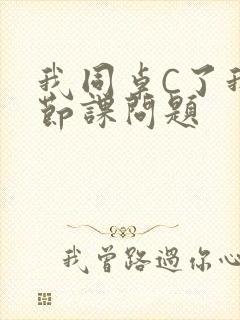 我同桌C了我
節課問題
我曾路過你心